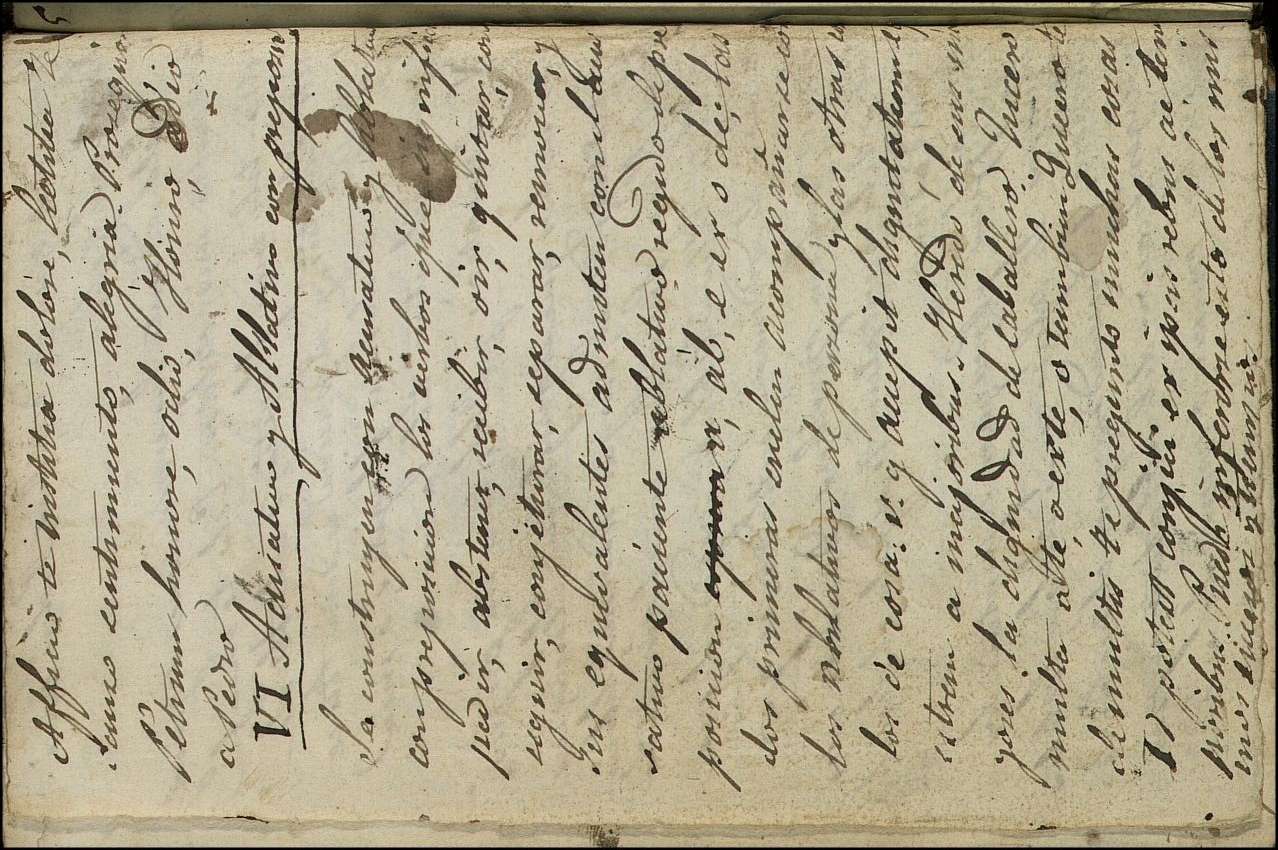 Afficio te tristitia dolore, laetitia te
causo sentimiento, alegria. Prosequor
Petrum honore, odio, Honro, Odio
a Pedro
VI Acusativo y Ablativo con preposi
Se construyen con acusativo y ablativo
con preposicion los verbos que
pedir, abstener, recibir, oir, quitar, con
seguir, conjeturar, separar, remover, y
sus equivalentes admiten con el acu
sativo paciente ablativo regido de pre
posicion a, ab, e ex o de, los
dos primeras suelen acompañarse con
los ablativos de persona y las otras
los de cosa. v. g. accepit dignitatem e
estrem a majoribus. Heredó de sus ma
yores la dignidad de Caballero. Quaero
multa a te, o ex te, o tambien Quaero te
de multis te pregunto muchas cosas
Id potest conjici ex ipsis rebus ac tem
poribus. Puede inferirse esto de los mis
mos sucesos y tiempos.